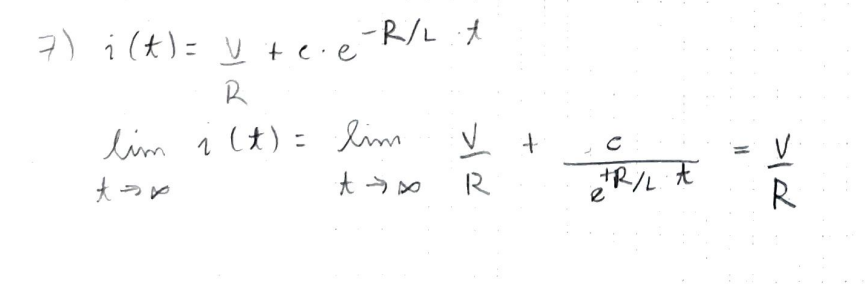 7) i(t) = V/R + c · e^{-R/L · t}
lim_{t→∞} i(t) = lim_{t→∞} V/R + c/e^{+R/L t} = V/R